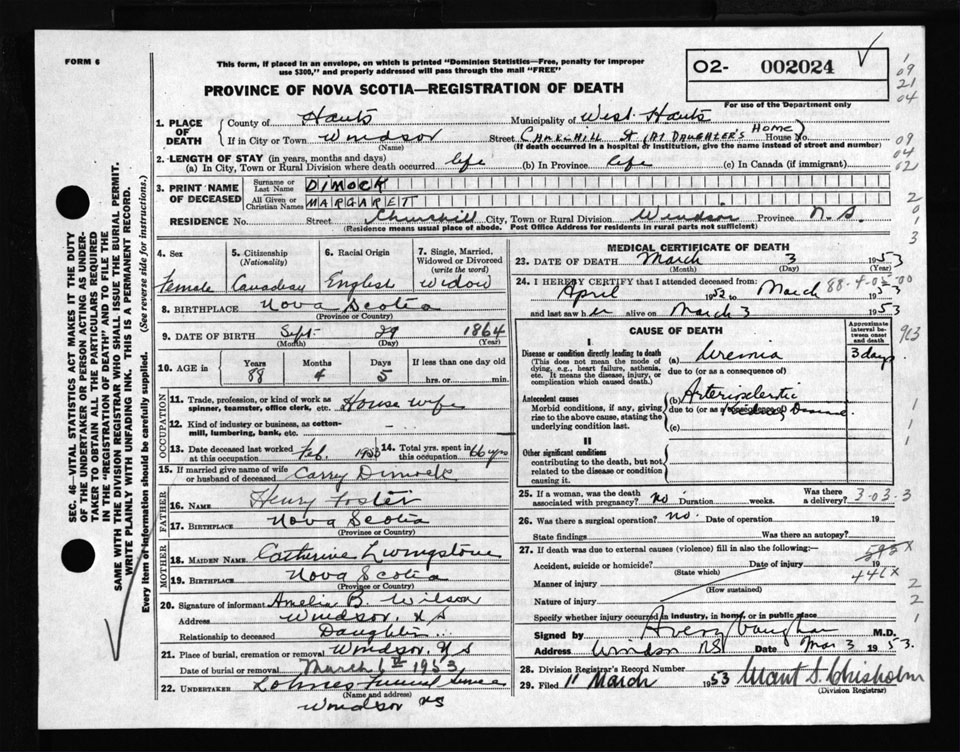 FORM 6
This form, if placed in an envelope, on which is printed "Dominion Statistics—Free, penalty for improper
use $300," and properly addressed will pass through the mail "FREE"
02- 002024
PROVINCE OF NOVA SCOTIA—REGISTRATION OF DEATH
For use of the Department only
1. PLACE OF DEATH
County of Hants Municipality of West Hants
If in City or Town Windsor Street CHURCHILL ST (AT DAUGHTER'S HOME) House No.
(Name) (If death occurred in a hospital or institution, give the name instead of street and number)
2. LENGTH OF STAY (in years, months and days)
(a) In City, Town or Rural Division where death occurred life (b) In Province life (c) In Canada (if immigrant)
3. PRINT NAME OF DECEASED
Surname or Last Name DIMOCK
All Given or Christian Names MARGARET
RESIDENCE No. Street Churchill City, Town or Rural Division Windsor Province N.S.
(Residence means usual place of abode. Post Office Address for residents in rural parts not sufficient)
4. Sex Female
5. Citizenship (Nationality) Canadian
6. Racial Origin English
7. Single, Married, Widowed or Divorced (write the word) Widow
8. BIRTHPLACE Nova Scotia
(Province or Country)
9. DATE OF BIRTH Sept. 29 1864
(Month) (Day) (Year)
10. AGE in Years 88 Months 4 Days 5 If less than one day old hrs. or min.
OCCUPATION
11. Trade, profession, or kind of work as spinner, teamster, office clerk, etc. House wife
12. Kind of industry or business, as cotton-mill, lumbering, bank, etc. -
13. Date deceased last worked at this occupation Feb. 1953 14. Total yrs. spent in this occupation 66 yrs
15. If married give name of wife or husband of deceased Carry Dimock
FATHER
16. NAME Henry Foster
17. BIRTHPLACE Nova Scotia
(Province or Country)
MOTHER
18. MAIDEN NAME Catherine Livingstone
19. BIRTHPLACE Nova Scotia
(Province or Country)
20. Signature of informant Amelia B. Wilson
Address Windsor, N S
Relationship to deceased Daughter
21. Place of burial, cremation or removal Windsor, N S
Date of burial or removal March 6th 1953
22. UNDERTAKER Lohnes Funeral Service
(Name and address)
Windsor NS
MEDICAL CERTIFICATE OF DEATH
23. DATE OF DEATH March 3 1953
(Month) (Day) (Year)
24. I HEREBY CERTIFY that I attended deceased from:
April 1952 to March 3 1953
88-4-05-00
and last saw her alive on March 3 1953
CAUSE OF DEATH
Approximate interval between onset and death
I
Disease or condition directly leading to death (a) Uremia 3 days
(This does not mean the mode of dying, e.g., heart failure, asthenia, etc. It means the disease, injury, or complication which caused death.)
due to (or as a consequence of)
Antecedent causes (b) Arteriosclerotic
Morbid conditions, if any, giving rise to the above cause, stating the underlying condition last.
due to (or as a consequence of)
(c)
II
Other significant conditions
contributing to the death, but not related to the disease or condition causing it.
25. If a woman, was the death associated with pregnancy? no Duration weeks. Was there a delivery? 3-03-3
26. Was there a surgical operation? no. Date of operation 19
State findings Was there an autopsy?
27. If death was due to external causes (violence) fill in also the following:— 593X
Accident, suicide or homicide? Date of injury 19
(State which) 446X
Manner of injury
(How sustained)
Nature of injury
Specify whether injury occurred in industry, in home, or in public place
Signed by Avery Vaughan M.D.
Address Windsor NS Date Mar 3 1953
28. Division Registrar's Record Number
29. Filed 11 March 1953 Chisholm
(Division Registrar)
SEC. 46 VITAL STATISTICS ACT MAKES IT THE DUTY
OF THE UNDERTAKER OR PERSON ACTING AS UNDER-
TAKER TO OBTAIN ALL THE PARTICULARS REQUIRED
IN THE "REGISTRATION OF DEATH" AND TO FILE THE
SAME WITH THE DIVISION REGISTRAR WHO SHALL ISSUE THE BURIAL PERMIT.
WRITE PLAINLY WITH UNFADING INK. THIS IS A PERMANENT RECORD.
Every item of information should be carefully supplied. (See reverse side for instructions.)
1
09
21
04
09
04
02
2
0
1
3
913
1
1
1
2
2
1